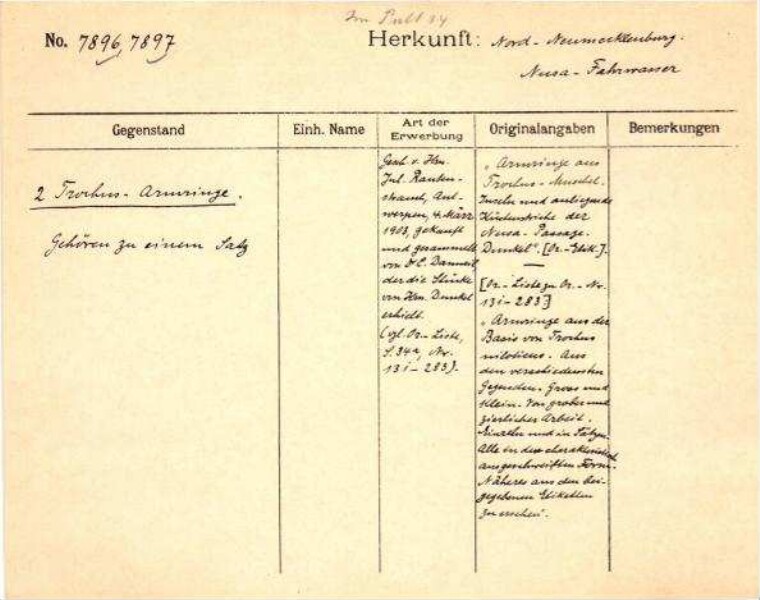 Im Pult 14
No. 7896, 7897
Herkunft: Nord-Neumecklenburg.
Nusa-Fahrwasser
Gegenstand
Einh. Name
Art der
Erwerbung
Originalangaben
Bemerkungen
2 Trochus-Armringe.
Gehören zu einem Satz
Gesch. v. Hrn.
Jul. Rauten-
strauch, Ant-
werpen, 4. März
1903, gekauft
und gesammelt
von O. C. Danneil,
der die Stücke
von Hrn. Dunkel
erhielt.
(vgl. Or.-Liste,
S. 34a, Nr.
13 i - 283).
„Armringe aus
Trochus-Muschel.
Inseln und anliegende
Küstenstriche der
Nusa-Passage.
Dunkel". [Or.-Etik.].
[Or.-Liste zu Or.-Nr.
13 i - 283]
„Armringe aus der
Basis von Trochus
niloticus. Aus
den verschiedensten
Gegenden. Gross und
Klein. Von grober und
zierlicher Arbeit.
Einzeln und in Sätzen.
Alle in der charakteristisch
ausgeschweiften Form.
Näheres aus den bei-
gegebenen Etiketten
zu ersehen".